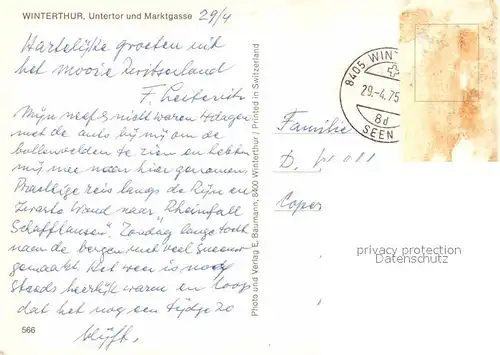 WINTERTHUR, Untertor und Marktgasse 29/4
Hartelijke groeten uit
het mooie Zwitserland
F.
Mijn neefs nicht waren 4 dagen
met de auto bij mij om de
bollenvelden te zien en hebben
mij mee naar hier genomen
Prachtige reis langs de Rijn en
Zwarte Woud naar "Rheinfall
Schaffhausen". Zondag lange tocht
naar de bergen met veel sneeuw
gemaakt. Het weer is nog
steeds heerlijk warm en hoop
dat het nog een tijdje zo
blijft.
566
Photo und Verlag E. Baumann, 8400 Winterthur / Printed in Switzerland
8405 WINT
29.-4.75
8d
SEEN
Familie
D.
Coper
privacy protection
Datenschutz